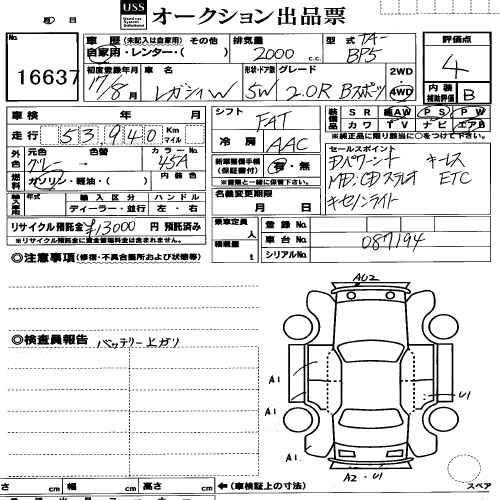 USS オークション出品票
No. 16637
車歴 (未記入は自家用) その他
自家用・レンター・( )
排気量 2000 c.c.
型式 TA-BP5
評価点 4
初度登録年月 17/8月
車名 レガシィW
形状・ドア数 5W
グレード 2.0R Bスポーツ
2WD・4WD
内装補助評価 B
車検 年 月
走行 53,940 Km マイル
外色 元色 グレー 色替
カラーNo. 45A
燃料 ガソリン・軽油・( ) 内装色
輸入車用 年式 輸入区分 ハンドル
ディーラー・並行 左・右
リサイクル預託金 ¥13000 円 預託済み
※リサイクル預託金に資金管理料金は含まれません。
シフト FAT
冷房 AAC
新車整備手帳(保証書付) 有・無
※書類と一緒に保管下さい。
名義変更期限 月 日
装備品 SR AW PS PW
カワ TV ナビ エアB
※純正品に限り該当に○をつけて下さい。
セールスポイント
キーレス
ETC
キセノンライト
乗車定員 人
積載量 t
登録No.
車台No. 087194
シリアルNo.
◎注意事項 (修復・不具合箇所および状態等)
◎検査員報告 バッテリー上ガリ
AU2
A1
A1
U1
A2・U1
さ cm 幅 cm 高さ cm ←(車検証上の寸法)
スペア